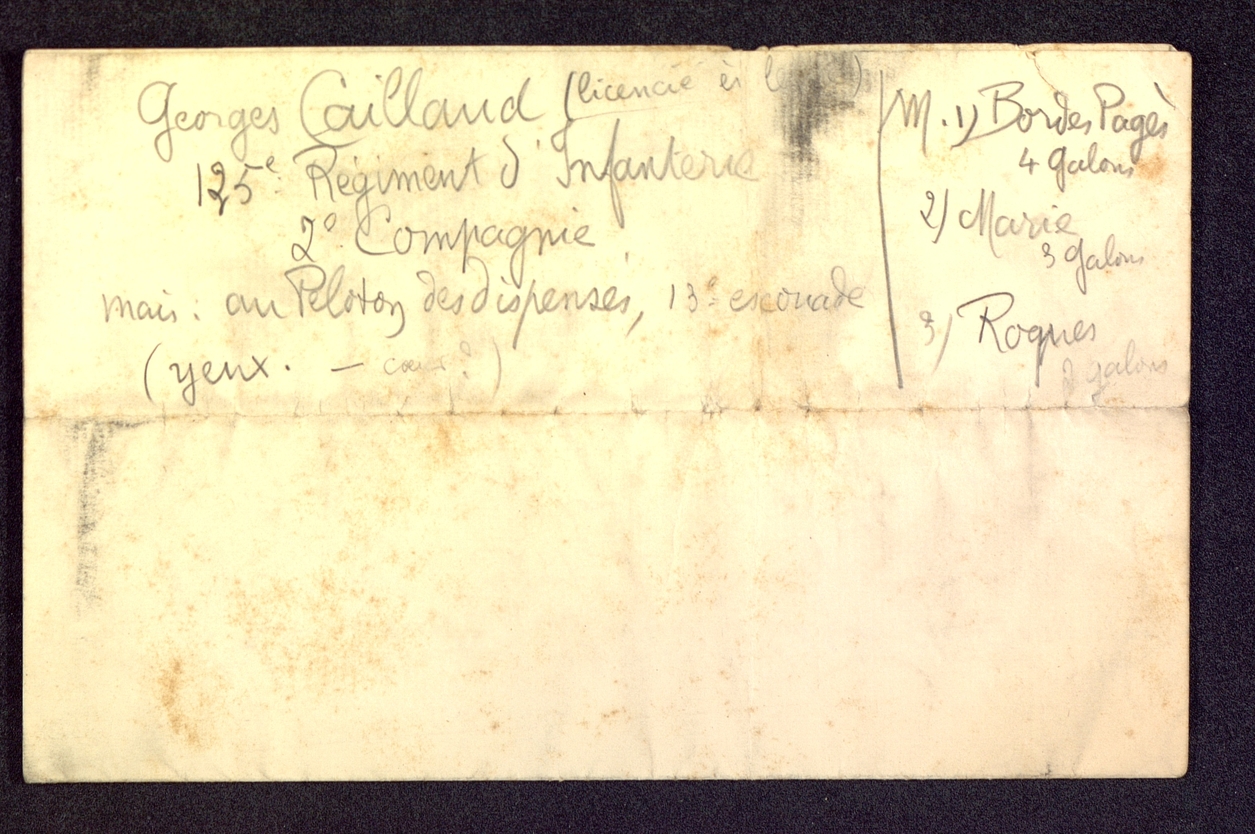 Georges Caillaud (licencié ès
125e Régiment d'Infanterie
2e Compagnie
mais: au Peloton des dispensés, 13e escouade
(yeux. — cœur?)
M. 1) Bordes Pagès
4 galons
2) Marie
3 galons
3) Roques
galons